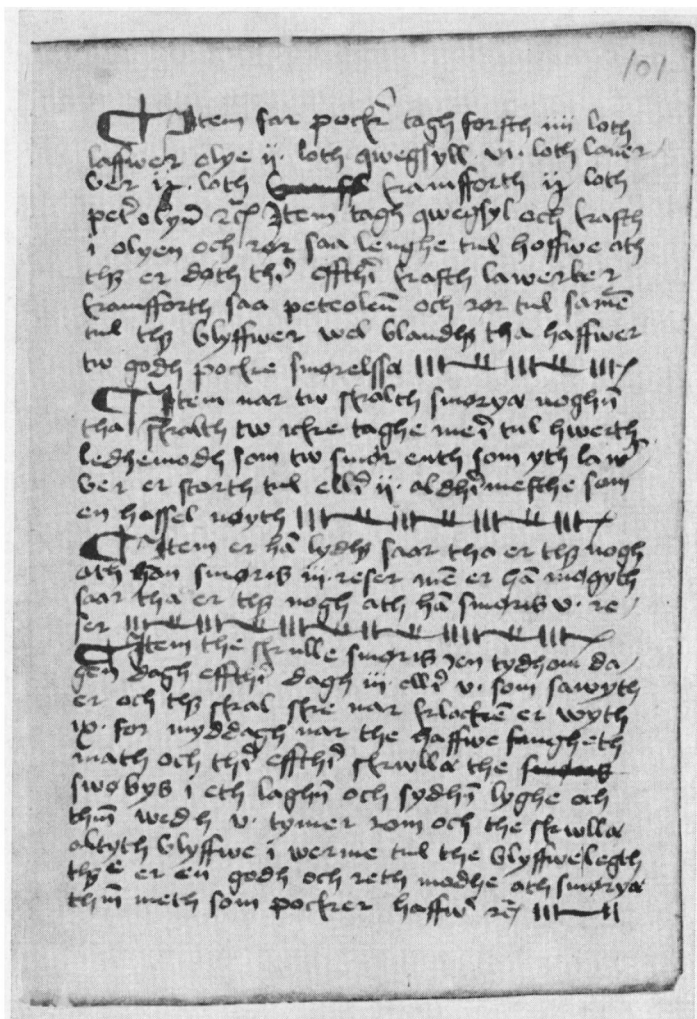 101
Item for pocker tagh forsth iiii loth
laffwer olye ii. loth qwegsylff vi. loth lawer
ber ix. loth framfforth ix loth
Item tagh qwegsyl och krasth
i olyen och rør saa lenghe til hoffwe ath
er døth effther krasth lawerber
framfforth saa peteoleum och rør til samen
til blyffwer wel blandh tha haffwer
tw godh pockre smørelssa
Item nar tw skalth smørya noghen
tha skalth tw icke taghe mer til hwerth
ledhemodh som tw smør enth som yth law
ber er storth til eller ii. aldher mesthe som
en hassel nøyth
Item er han lydh saar tha er nogh
ath han smøris iii. reser men er han møgyth
saar tha er nogh ath han smøris v. re
ser
Item the skulle smøris en tydh om da
gen dagh effther dagh iii. eller v. som sawyth
er och skal ske nar klocken er wyth
ix. for myddagh nar the haffwe fangheth
math och ther effther skwlla the
swøbys i eth laghen och sydhen lyghe och
them wedh v. tymer om och the skwlla
altyth blyffwe i werme til the blyffwe legth
er en godh och reth madhe ath smørya
them meth som pocker haffwer